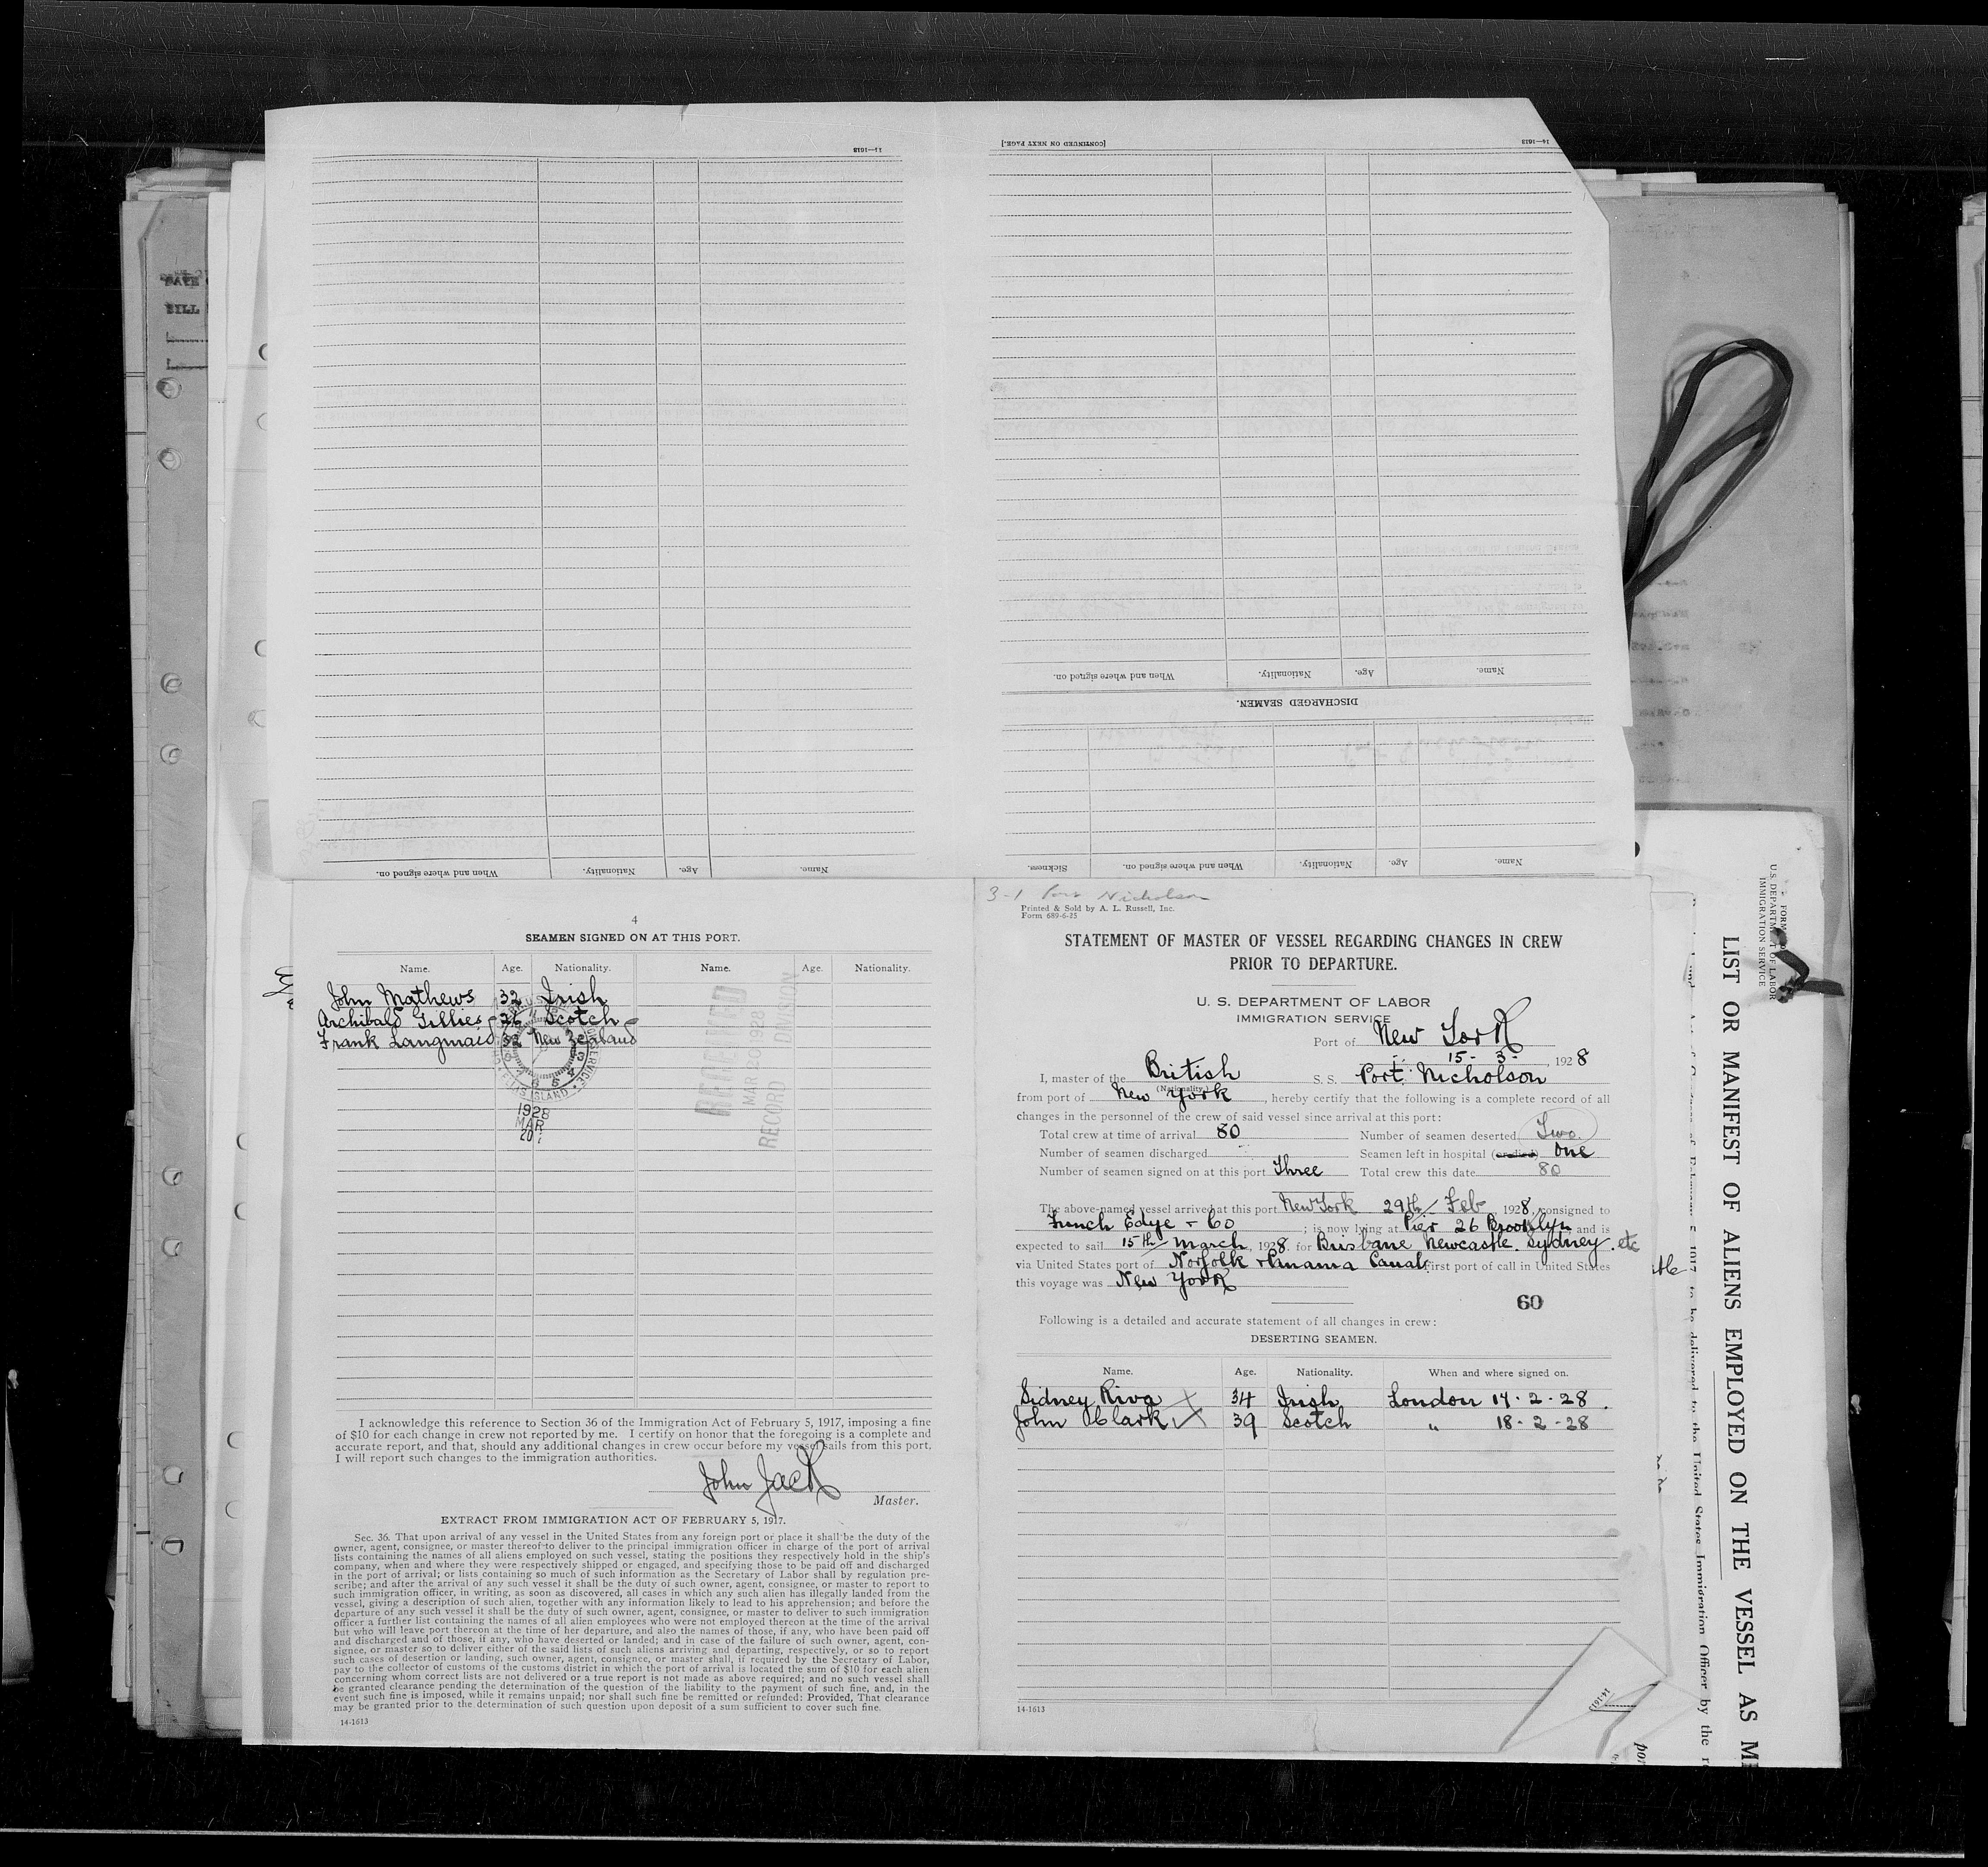 14—1613
[CONTINUED ON NEXT PAGE.]
14—1613
Name. Age. Nationality. When and where signed on.
DISCHARGED SEAMEN.
Name. Age. Nationality. When and where signed on. Sickness.
Name. Age. Nationality. When and where signed on.
4
SEAMEN SIGNED ON AT THIS PORT.
Name. Age. Nationality. Name. Age. Nationality.
John Mathews 32 Irish
Archibald Gillies 26 Scotch
Frank Langmaid 32 New Zealand
ELLIS ISLAND
1928
MAR
20
RECEIVED
MAR 20 1928
RECORD DIVISION
I acknowledge this reference to Section 36 of the Immigration Act of February 5, 1917, imposing a fine
of $10 for each change in crew not reported by me. I certify on honor that the foregoing is a complete and
accurate report, and that, should any additional changes in crew occur before my vessel sails from this port,
I will report such changes to the immigration authorities.
John Jack
Master.
EXTRACT FROM IMMIGRATION ACT OF FEBRUARY 5, 1917.
Sec. 36. That upon arrival of any vessel in the United States from any foreign port or place it shall be the duty of the
owner, agent, consignee, or master thereof to deliver to the principal immigration officer in charge of the port of arrival
lists containing the names of all aliens employed on such vessel, stating the positions they respectively hold in the ship's
company, when and where they were respectively shipped or engaged, and specifying those to be paid off and discharged
in the port of arrival; or lists containing so much of such information as the Secretary of Labor shall by regulation pre-
scribe; and after the arrival of any such vessel it shall be the duty of such owner, agent, consignee, or master to report to
such immigration officer, in writing, as soon as discovered, all cases in which any such alien has illegally landed from the
vessel, giving a description of such alien, together with any information likely to lead to his apprehension; and before the
departure of any such vessel it shall be the duty of such owner, agent, consignee, or master to deliver to such immigration
officer a further list containing the names of all alien employees who were not employed thereon at the time of the arrival
but who will leave port thereon at the time of her departure, and also the names of those, if any, who have been paid off
and discharged and of those, if any, who have deserted or landed; and in case of the failure of such owner, agent, con-
signee, or master so to deliver either of the said lists of such aliens arriving and departing, respectively, or so to report
such cases of desertion or landing, such owner, agent, consignee, or master shall, if required by the Secretary of Labor,
pay to the collector of customs of the customs district in which the port of arrival is located the sum of $10 for each alien
concerning whom correct lists are not delivered or a true report is not made as above required; and no such vessel shall
be granted clearance pending the determination of the question of the liability to the payment of such fine, and, in the
event such fine is imposed, while it remains unpaid; nor shall such fine be remitted or refunded: Provided, That clearance
may be granted prior to the determination of such question upon deposit of a sum sufficient to cover such fine.
14-1613
3-1 Port Nicholson
Printed & Sold by A. L. Russell, Inc.
Form 689-6-25
STATEMENT OF MASTER OF VESSEL REGARDING CHANGES IN CREW
PRIOR TO DEPARTURE.
U. S. DEPARTMENT OF LABOR
IMMIGRATION SERVICE
Port of New York
15 - 3 - , 1928
I, master of the British S. S. Port Nicholson
(Nationality)
from port of New York, hereby certify that the following is a complete record of all
changes in the personnel of the crew of said vessel since arrival at this port:
Total crew at time of arrival 80 Number of seamen deserted Two
Number of seamen discharged Seamen left in hospital (or died) One
Number of seamen signed on at this port Three Total crew this date 80
The above-named vessel arrived at this port New York 29th Feb, 1928, consigned to
Funch Edye & Co; is now lying at Pier 26 Brooklyn and is
expected to sail 15th March, 1928. for Brisbane Newcastle. Sydney. etc
via United States port of Norfolk & Panama Canal. First port of call in United States
this voyage was New York
60
Following is a detailed and accurate statement of all changes in crew:
DESERTING SEAMEN.
Name. Age. Nationality. When and where signed on.
Sidney Riva 34 Irish London 17 - 2 - 28.
John Clark 39 Scotch " 18 - 2 - 28
14-1613
U.S. DEPARTMENT OF LABOR
IMMIGRATION SERVICE
LIST OR MANIFEST OF ALIENS EMPLOYED ON THE VESSEL AS
to be delivered to the United States Immigration Officer by the